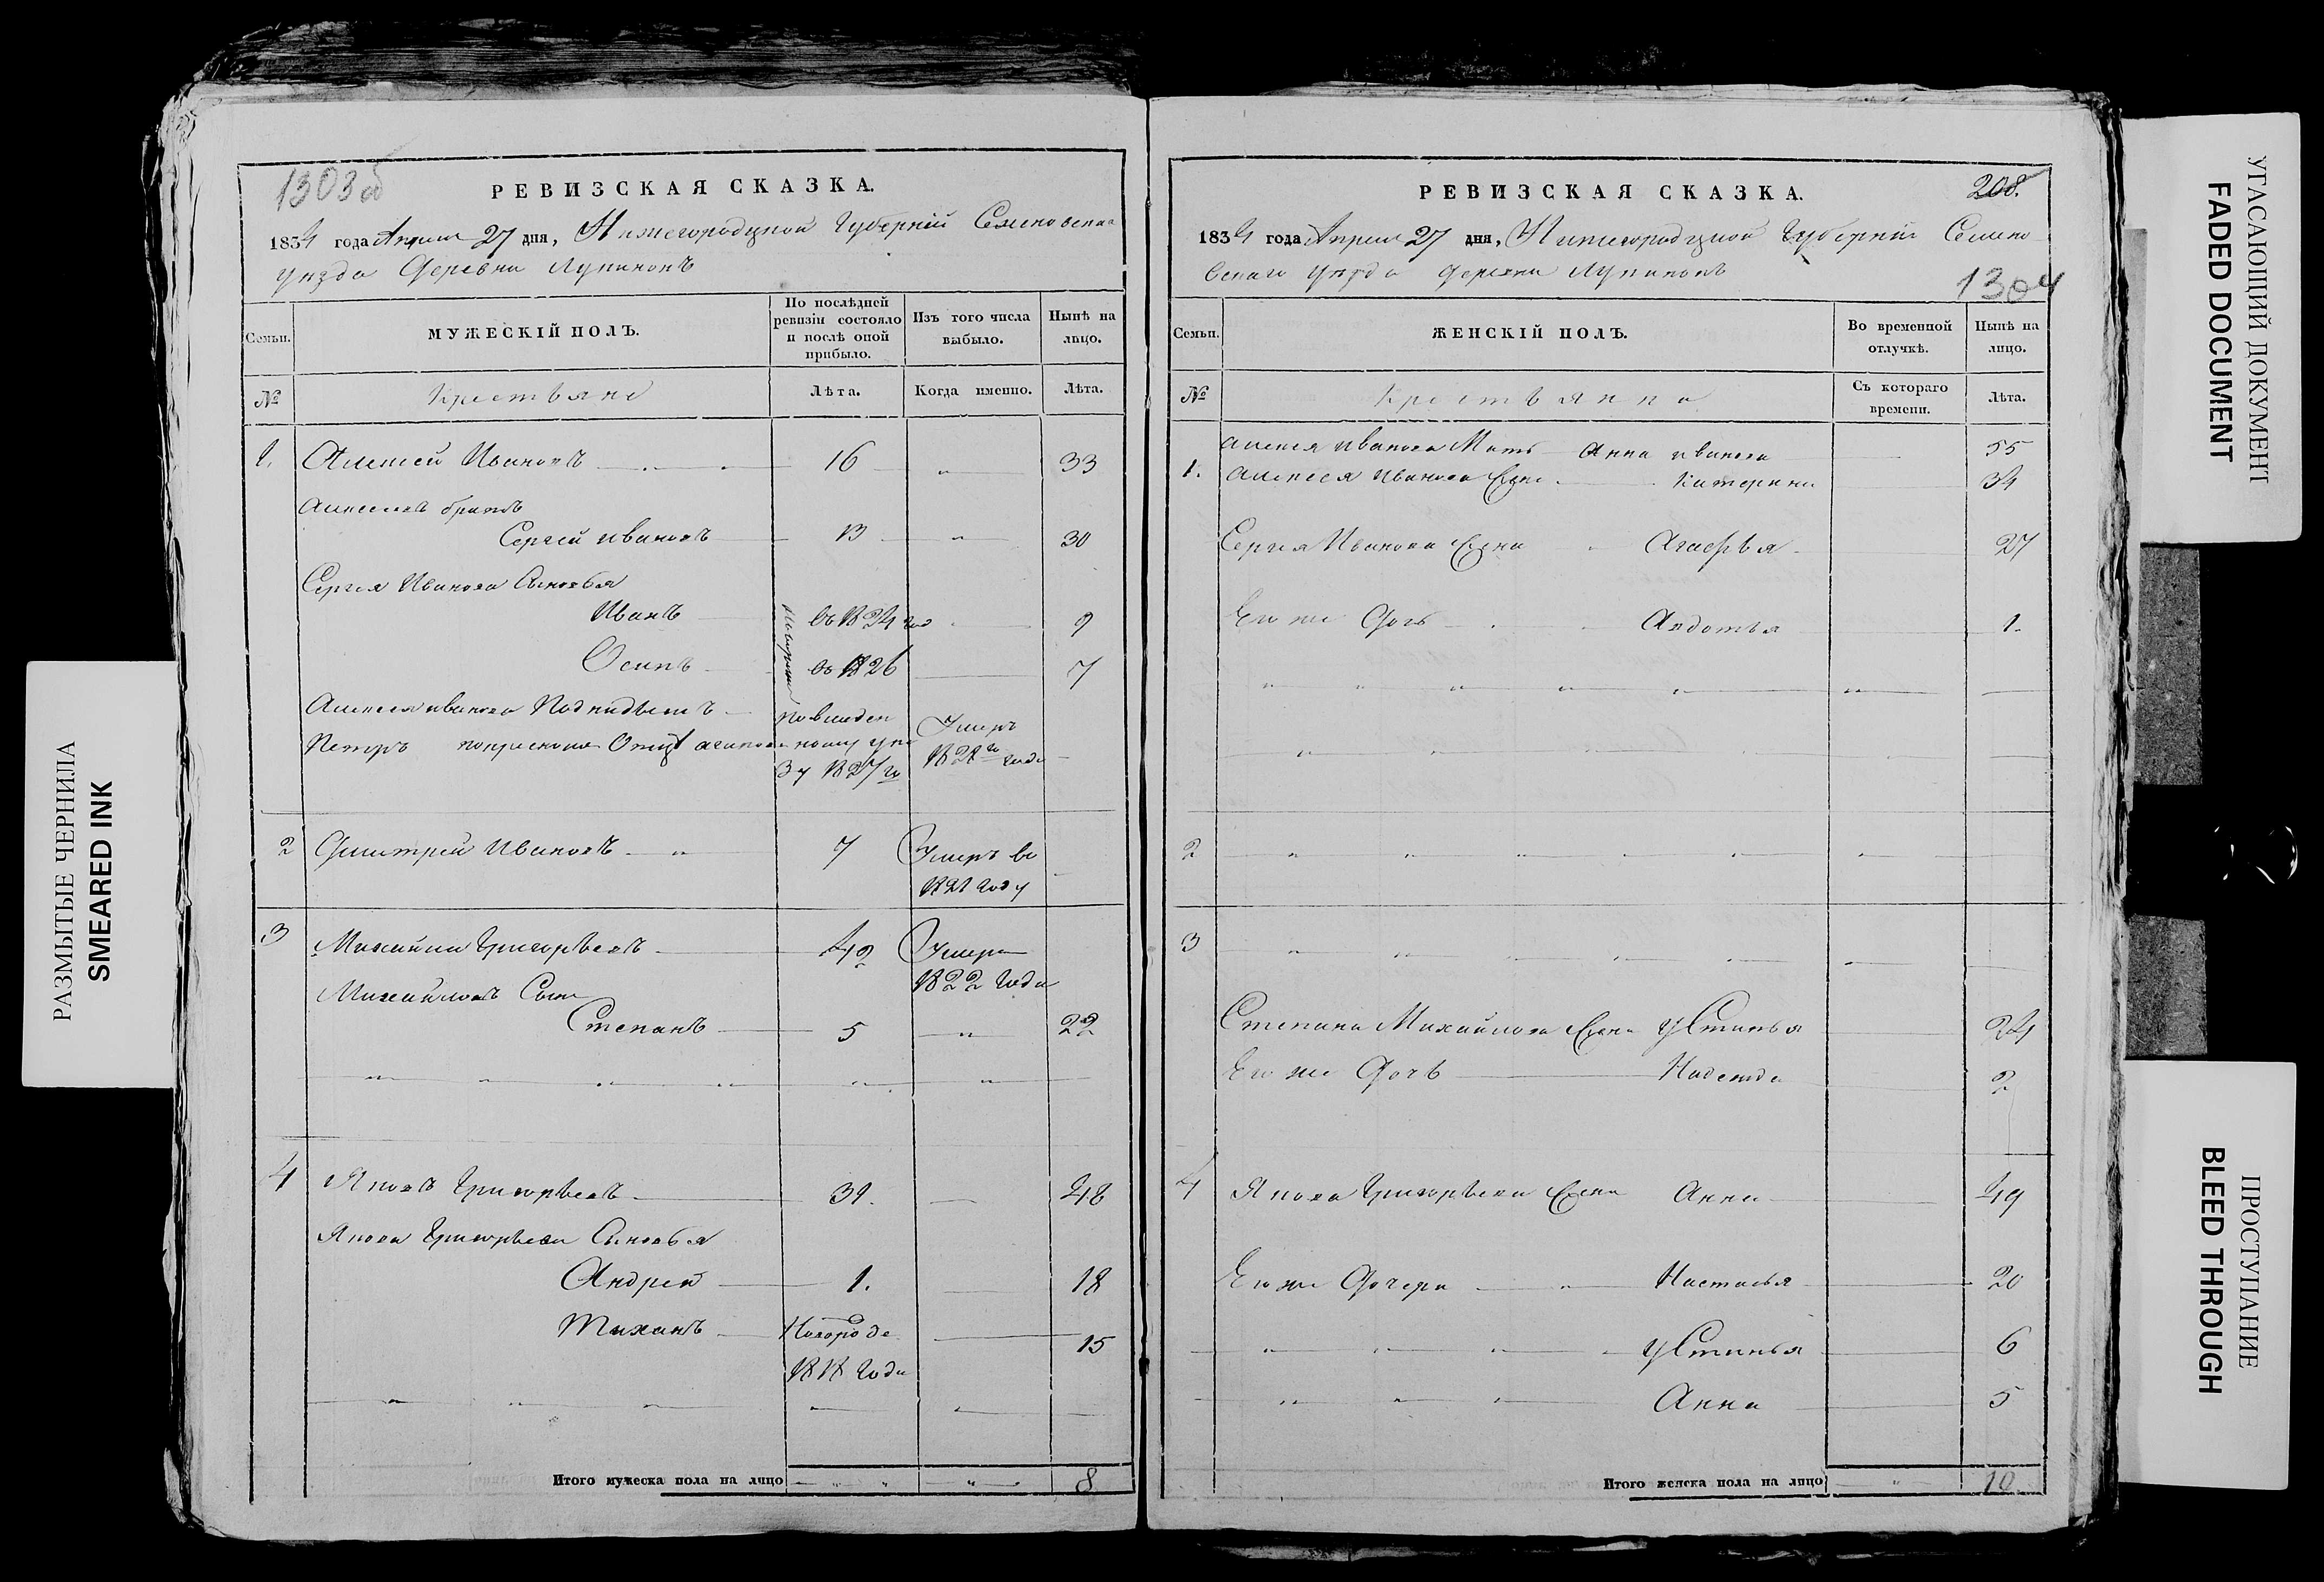 РАЗМЫТЫЕ ЧЕРНИЛА
SMEARED INK
1303 об
РЕВИЗСКАЯ СКАЗКА.
1834 года Апреля 27 дня, Нижегородцкой Губернiи Семеновскаго
уезда Деревни Лупиновъ
Семьи.
МУЖЕСКIЙ ПОЛЪ.
По послѣдней ревизiи состояло и послѣ оной прибыло.
Изъ того числа выбыло.
Нынѣ на лицо.
№
Крестьяне
Лѣта.
Когда именно.
Лѣта.
1. Алексей Ивановъ 16 33
Алексеевъ братъ
Сергей Ивановъ 13 30
Сергея Иванова Сыновья
Иванъ въ 1824 год 9
Осипъ въ 1826 7
Алексея Иванова
Петръ
Умеръ
1828го года
зу 1827го
2 Дмитрей Ивановъ 7 Умеръ въ
1821 году
3 Михайла Григорьевъ 42 Умеръ
1822 года
Михайловъ Сынъ
Степанъ 5 22
4 Яковъ Григорьевъ 31. 48
Якова Григорьева Сыновья
Андрей 1. 18
Тиханъ Новорожде 15
1818 года
Итого мужеска пола на лицо 8
РЕВИЗСКАЯ СКАЗКА.
208.
1834 года Апреля 27 дня, Нижегородцкой Губернiи Семено
вскаго уезда деревни Лупиновъ
1304
Семьи.
ЖЕНСКIЙ ПОЛЪ.
Во временной отлучкѣ.
Нынѣ на лицо.
№
Крестьянки
Съ котораго времени.
Лѣта.
Алексея Иванова Мать Анна Иванова 55
1. Алексея Иванова Жена Катерина 34
Сергея Иванова Жена Агафья 27
Его же Дочь Авдотья 1.
2
3
Степана Михайлова Жена Устинья 24
Его же Дочь Надежда 2
4 Якова Григорьева Жена Анна 49
Его же Дочери Настасья 20
Устинья 6
Анна 5
Итого женска пола на лицо 10
УГАСАЮЩИЙ ДОКУМЕНТ
FADED DOCUMENT
ПРОСТУПАНИЕ
BLEED THROUGH